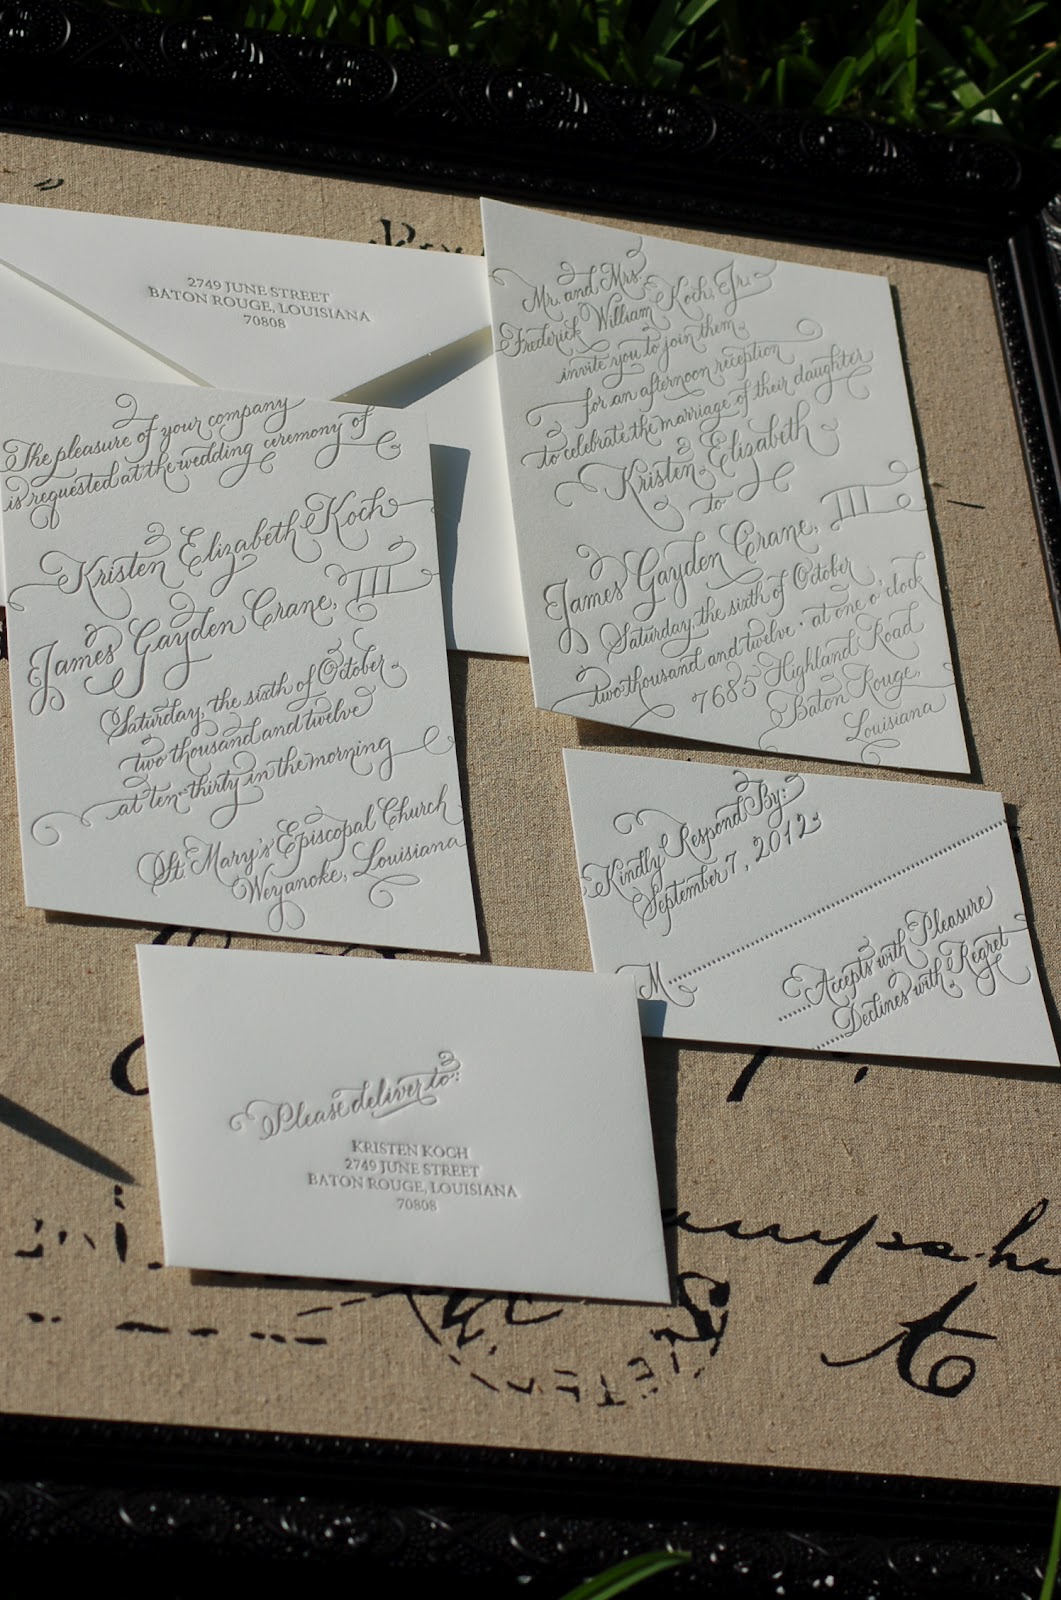 2749 JUNE STREET
BATON ROUGE, LOUISIANA
70808
Mr. and Mrs.
Frederick William Koch, Jr.
invite you to join them
for an afternoon reception
to celebrate the marriage of their daughter
Kristen Elizabeth
to
James Gayden Crane, III
Saturday, the sixth of October
two thousand and twelve · at one o'clock
7685 Highland Road
Baton Rouge,
Louisiana
The pleasure of your company
is requested at the wedding ceremony of
Kristen Elizabeth Koch
James Gayden Crane, III
Saturday, the sixth of October
two thousand and twelve
at ten-thirty in the morning
St. Mary's Episcopal Church
Weyanoke, Louisiana
Kindly Respond By:
September 7, 2012
M
Accepts with Pleasure
Declines with Regret
Please deliver to:
KRISTEN KOCH
2749 JUNE STREET
BATON ROUGE, LOUISIANA
70808